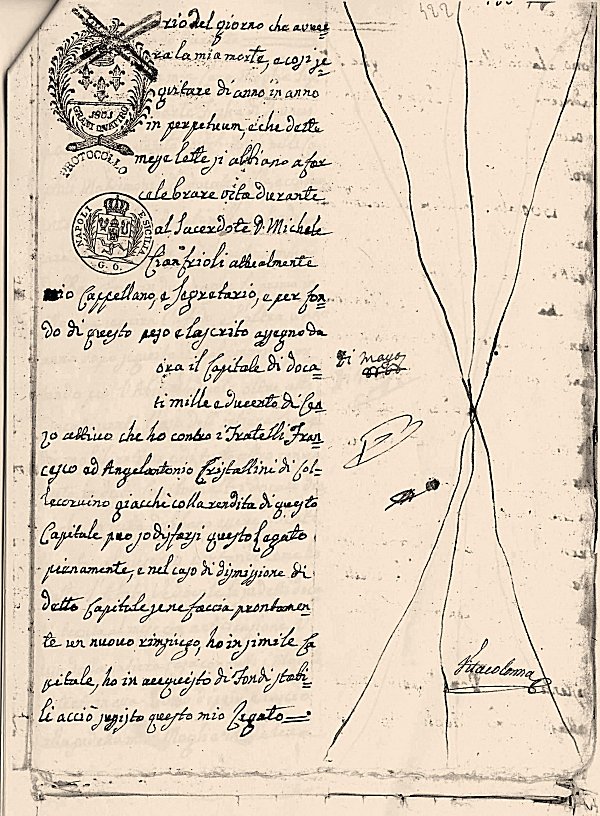 422
1801
GRANI QUATTRO
PROTOCOLLO
NAPOLI E SICILIA
G. O.
rio del giorno che avver=
ra la mia morte, e così se=
guitare di anno in anno
in perpetuum, e che dette
messe lette si abbiano a far
celebrare vita durante
al Sacerdote D. Michele
Cianfrioli attualmente
mio Cappellano, e Segretario, e per fon=
do di questo peso e lascrito assegno da
ora il Capitale di doca=
ti mille e ducento di Cen=
zo attivo che ho contro i Fratelli Fran=
cesco ed Angelantonio Cristallini di Col=
lecorvino giacchè colla rendita di questo
Capitale può sodisfarsi questo Legato
pienamente, e nel caso di dismissione di
detto Capitale se ne faccia prontamen=
te un nuovo rinpiego, ho in simile Ca=
pitale, ho in acquisto di Fondi stabi=
li acciò sussista questo mio Legato
di Mayo
Vitacolonna